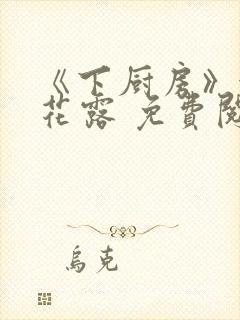 《下厨房》
花露 免費閱
烏克